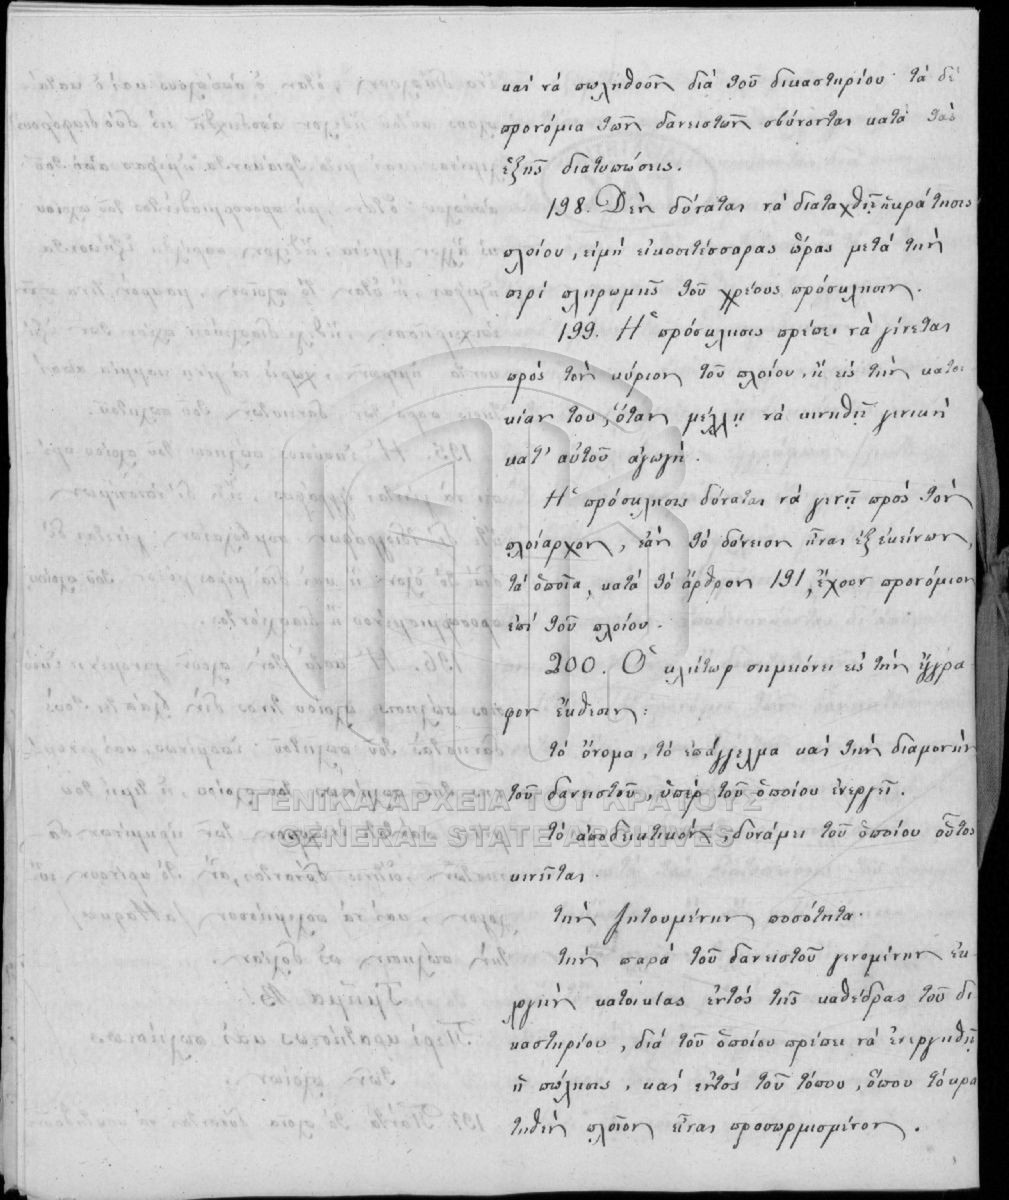 καὶ νὰ πωληθοῦν διὰ τοῦ δικαστηρίου· τὰ δὲ
προνόμια τῶν δανειστῶν σβύνονται κατὰ τὰς
ἑξῆς διατυπώσεις.
198. Δὲν δύναται νὰ διαταχθῇ ἡ κράτησις
πλοίου, εἰμὴ εἰκοσιτέσσαρας ὥρας μετὰ τὴν
περὶ πληρωμῆς τοῦ χρέους πρόσκλησιν.
199. Ἡ πρόσκλησις πρέπει νὰ γίνεται
πρὸς τὸν κύριον τοῦ πλοίου, ἢ εἰς τὴν κατοι
κίαν του, ὅταν μέλλῃ νὰ κινηθῇ γενικὴ
κατ' αὐτοῦ ἀγωγή.
Ἡ πρόσκλησις δύναται νὰ γενῇ πρὸς τὸν
πλοίαρχον, ἐὰν τὸ δάνειον ἦναι ἐξ ἐκείνων,
τὰ ὁποῖα, κατὰ τὸ ἄρθρον 191, ἔχουν προνόμιον
ἐπὶ τοῦ πλοίου.
200. Ὁ κλήτωρ σημειόνει εἰς τὴν ἔγγρα
φον ἔκθεσιν:
τὸ ὄνομα, τὸ ἐπάγγελμα καὶ τὴν διαμονὴν
τοῦ δανειστοῦ, ὑπὲρ τοῦ ὁποίου ἐνεργεῖ.
τὸ ἀποδεικτικὸν, δυνάμει τοῦ ὁποίου οὗτος
κινεῖται.
τὴν ζητουμένην ποσότητα.
τὴν παρὰ τοῦ δανειστοῦ γενομένην ἐκ
λογὴν κατοικίας ἐντὸς τῆς καθέδρας τοῦ δι
καστηρίου, διὰ τοῦ ὁποίου πρέπει νὰ ἐνεργηθῇ
ἡ πώλησις, καὶ ἐντὸς τοῦ τόπου, ὅπου τὸ κρα
τηθὲν πλοῖον εἶναι προσωρμισμένον.
ΓΕΝΙΚΑ ΑΡΧΕΙΑ ΤΟΥ ΚΡΑΤΟΥΣ
GENERAL STATE ARCHIVES